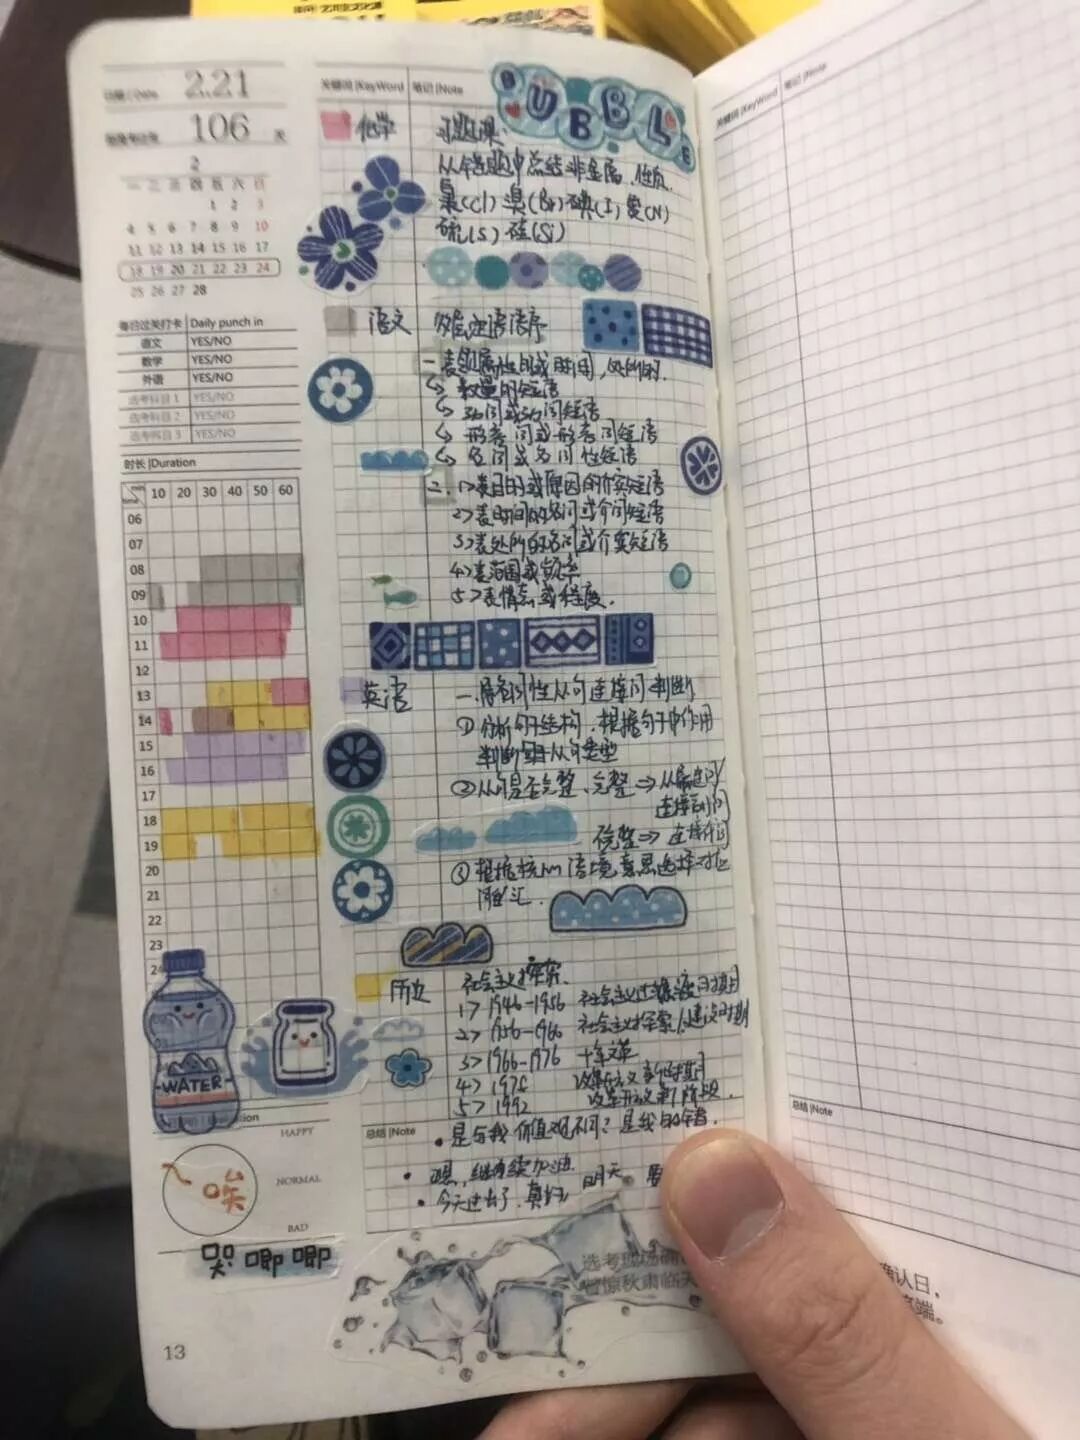 2.21
106 天
2
一 二 三 四 五 六 日
1 2 3
4 5 6 7 8 9 10
11 12 13 14 15 16 17
18 19 20 21 22 23 24
25 26 27 28
每日过关打卡 Daily punch in
语文 YES/NO
数学 YES/NO
外语 YES/NO
选考科目 1 YES/NO
选考科目 2 YES/NO
选考科目 3 YES/NO
时长 |Duration
10 20 30 40 50 60
06
07
08
09
10
11
12
13
14
15
16
17
18
19
20
21
22
23
24
WATER
HAPPY
NORMAL
BAD
唉
哭 唧 唧
13
关键词 |KeyWord 笔记 |Note
BUBBLE
化学 习题课:
从错题中总结非金属,性质.
氯(Cl) 溴(Br) 碘(I) 氮(N)
硫(S) 硅(Si)
语文 多层定语语序
数量的短语
动词或动词短语
形容词或形容词短语
名词或名词性短语
二. 1>表目的或原因的介宾短语
2>表时间的名词或介词短语
3>表处所的名词或介宾短语
4>表范围或频率
5>表情态或程度.
英语 一.名词性从句连接词判断
① 分析句子结构,根据句子中作用
判断从句类型
②从句是否完整、完整⇒从属连词/
连接副词
⇒连接代词
语境意思选择对应
词汇.
历史 社会主义探索
1> 1946-1956 社会主义过渡时期
2> 1956-1966 社会主义探索/建设时期
3> 1966-1976 十年文革
5> 1992
总结 |Note • 是与我价值观不同?是我的错.
• 嗯,继续加油 明天
• 今天过去了,真好
关键词 |KeyWord 笔记 |Note
总结 |Note
确认日,
端。